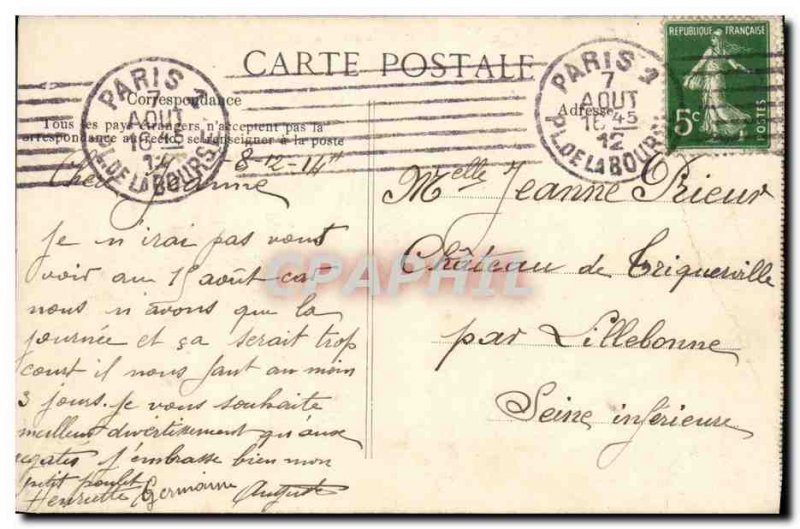 CARTE POSTALE
Correspondance
Tous les pays étrangers n'acceptent pas la
correspondance au recto, se renseigner à la poste
Adresse
PARIS 1
7
AOUT
16 45
12
PL. DE LA BOURSE
PARIS 1
7
AOUT
16 45
12
PL. DE LA BOURSE
RÉPUBLIQUE FRANÇAISE
5c
POSTES
CPAPHIL
8-12-14H
Cher Jeanne
Je n'irai pas vous
voir au 15 août car
nous n'avons que la
journée et ça serait trop
court il nous faut au moin
3 jours. Je vous souhaite
meilleur divertissement qu'aux
regates j'embrasse bien mon
petit poulet
Henriette Germaine Auguste
Melle Jeanne Prieur
Château de Triquerville
par Lillebonne
Seine inférieure